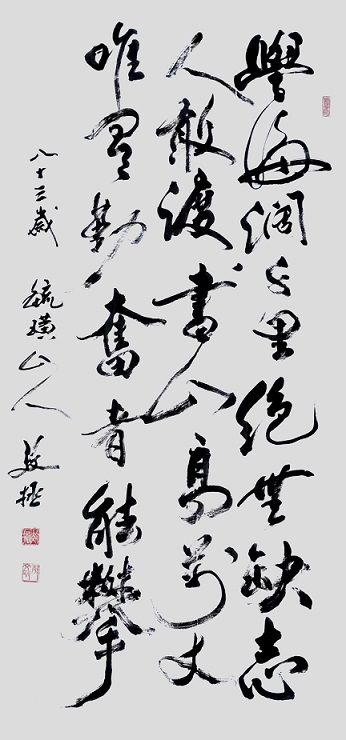 學海濶千里絕無缺志
人敢渡書山高萬丈
唯勤奮者能攀
八十三歲 毓璜山人